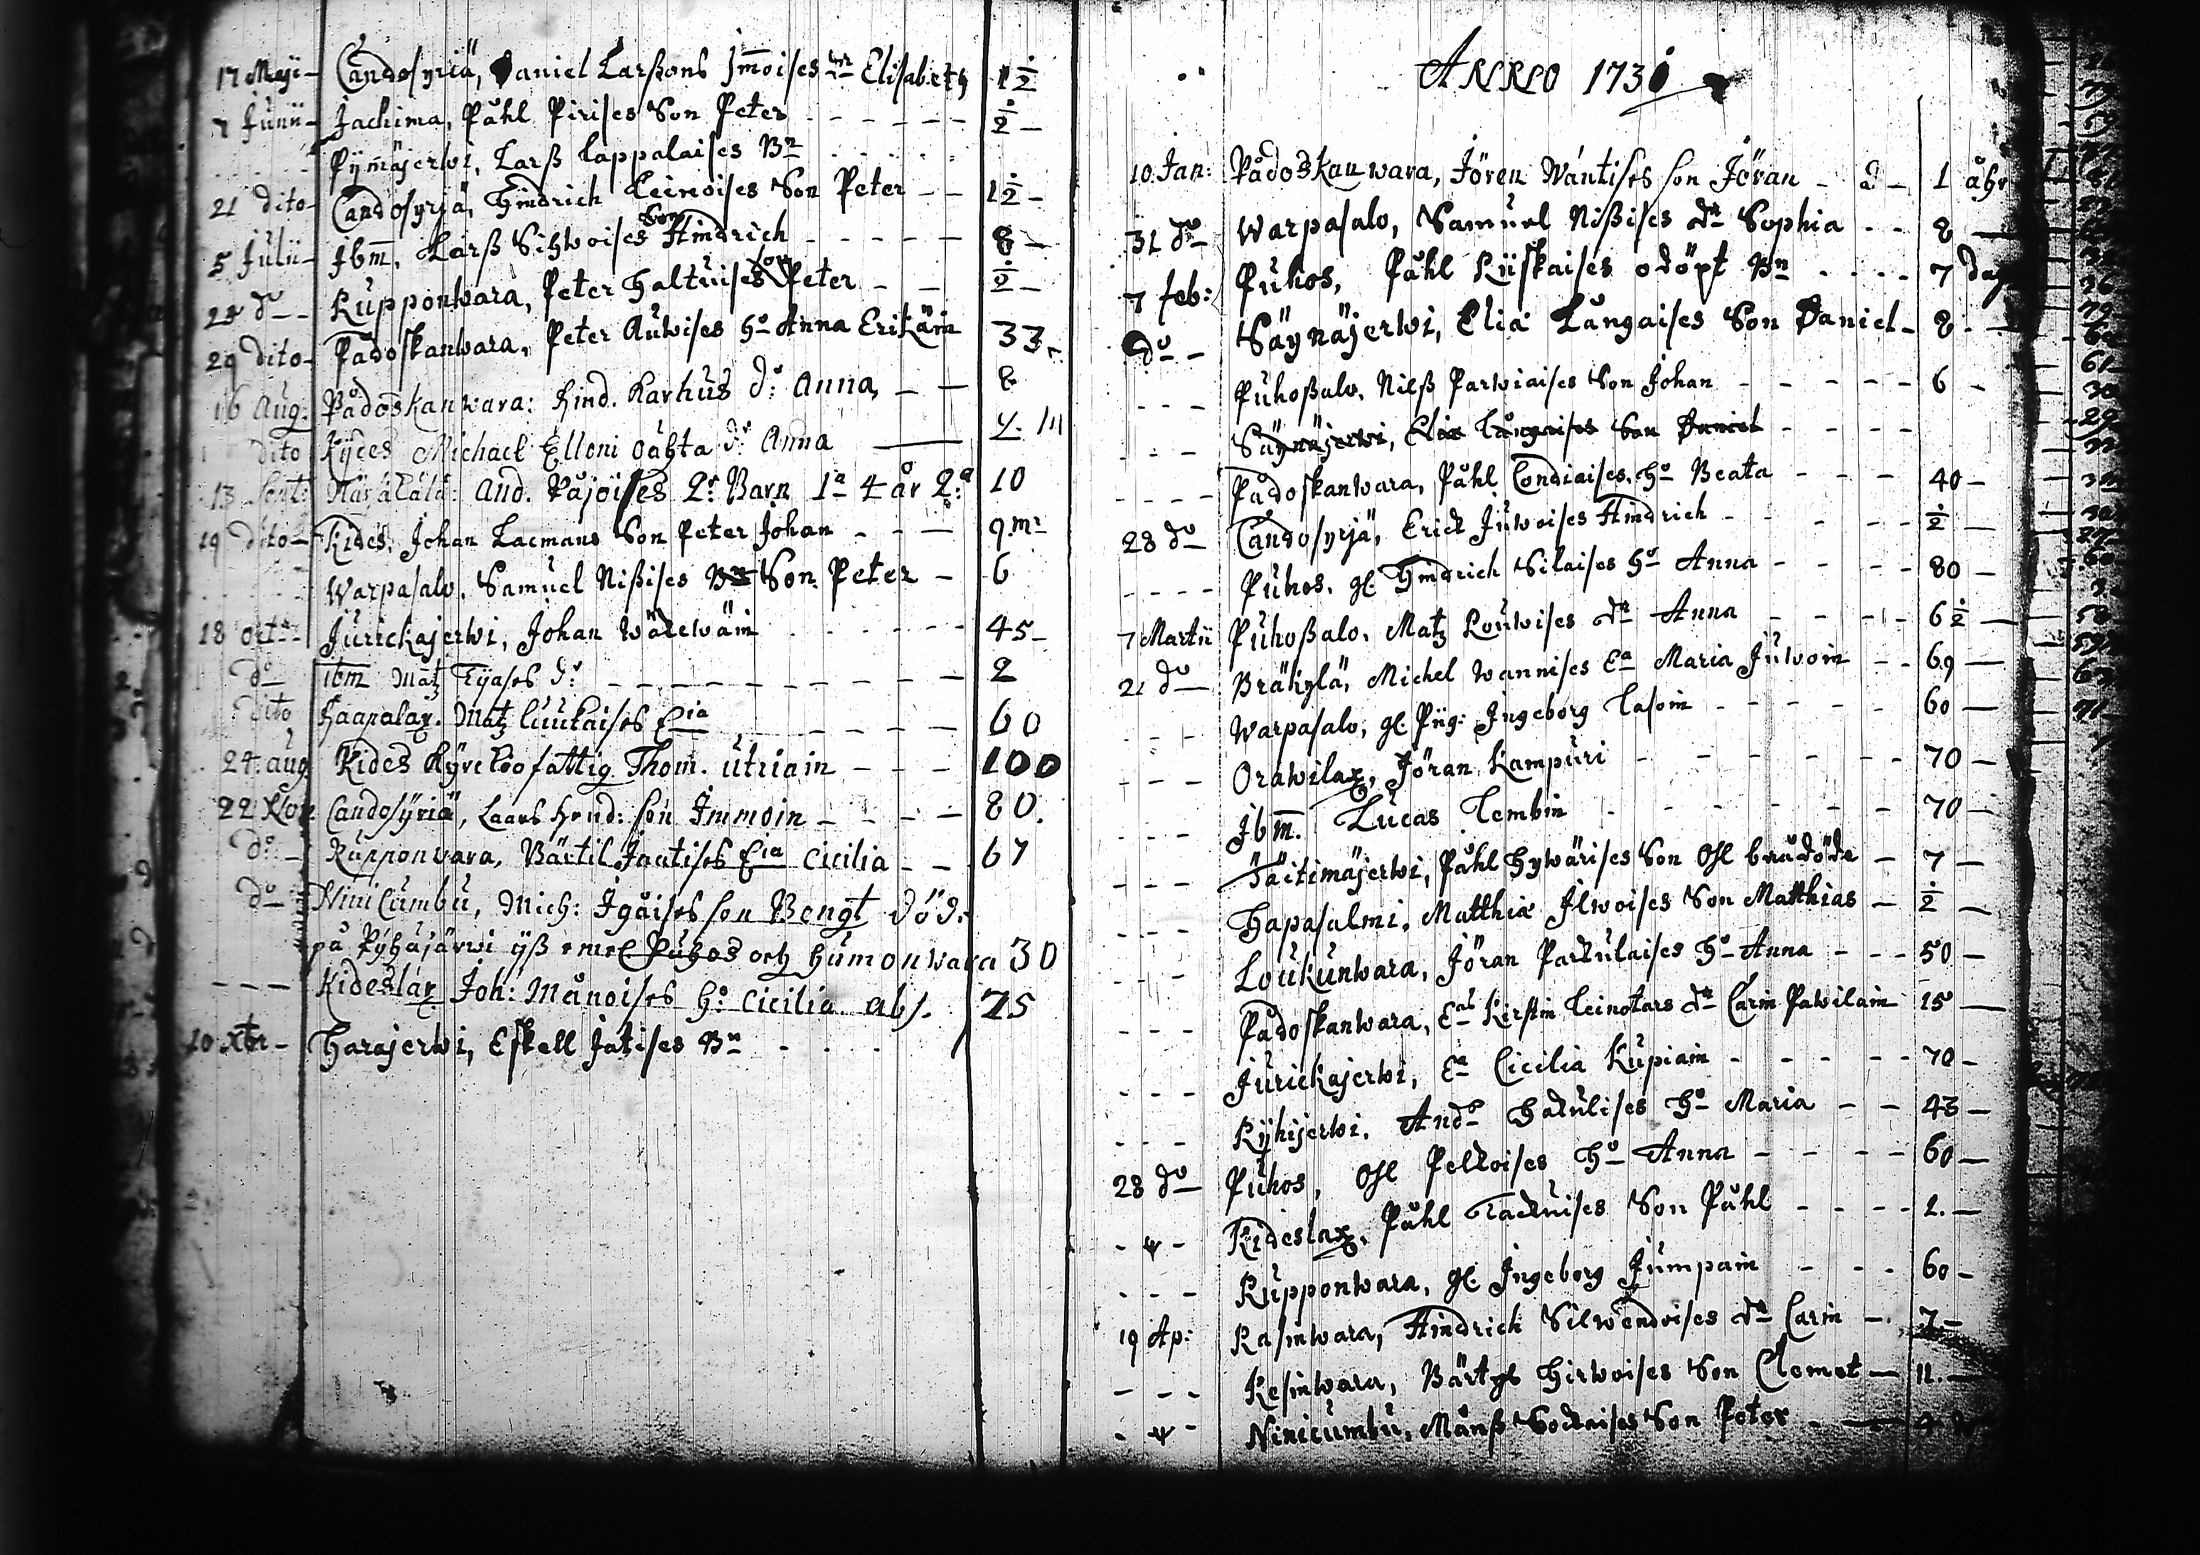 17 Maji - Candosyriä, Daniel Larßons Jm̅oises dr Elisabeth 1½
7 Junii - Jachima, Påhl Pirises Son Peter - - - - - - ½ -
Pÿm̅äjerwi, Larß Lappalaises Bn
21 dito - Candosyrjä, Hindrich Leinoises Son Peter - - 1½ -
5 Julii - Jbm̅. Larß Sihwoises Son Hindrich - - - - - 8 -
d° - Rupponwara, Peter Haltuises Son Peter - - ½ -
29 dito - Pådoskanwara, Peter Auwises Ho Anna Erikäin 33
16 Aug: Pådoskanwara: Hind. Karhus d: Anna, - - 8
dito Kÿdes Michael Elloni oähta dr Anna
And. Påjoises 2r Barn 1a 4 år 2:a 10
19 dito - Kides, Johan Lacmans Son Peter Johan - - - 9 mr
Warpasalo, Samuel Nißises Son Peter - 6
18 octr Jurickajerwi, Johan Wälewäin - - - 45 -
do ibm Matz Tÿases dr - - - - - - 2
dito Haapalax. Matz luukaises Eia - - - 60
24. aug Kides Kÿrckiofattig Thom. utriain - - - 100
22 Candosÿriä, Laars Hend: son Immoin - - - - 80.
do - Rupponwara, Bärtil Jaatises Eia Cicilia - - 67
do - Ninicumbu, Mich: Igåises son Bengt död.
på Pÿhäjärwi ÿß emel Puhos och Humonwara 30
- - - Kideslax Joh: Månoises Ho: Cicilia abs. 75
10 Xbr - Harajerwi, Eskell Jatises Bn - - -
ANNO 1731
10 Jan: Pådoskanwara, Jören Wäntises son Jöran - d - 1 åhr
31 do - Warpasalo, Samuel Nißises dr Sophia - - 8 -
7 feb: Puhos, Påhl Riiskaises odöpt Bn - - - - 7 dag
do - Säynäjerwi, Elia Långaises Son Daniel - 8 -
- - - Puhoßalo, Nilß Parwiaises Son Johan - - - - - 6 -
- - - Säynäjerwi, Elia Långaises Son Daniel - - - -
- - - - Pådoskanwara, Påhl Condiaises Ho Beata - - - 40 -
28 do - Candosyrjä, Erick Juwoises Hindrich - - - ½ -
- - - - Puhos. gl Hindrich Silaises Ho Anna - - - - 80 -
7 Martii Puhoßalo, Matz Louwises dr Anna - - - - 6½ -
21 do - Bräkylä, Michel Wannises Ea Maria Juwoin - - 69 -
- - - Warpasalo, gl. Piig: Jngeborg Tasoin - - - - 60 -
- - - Orawilax, Jöran Kampuri - - - - - 70 -
- - - Jbm̅. Lucas Tembin - - - - - 70 -
- - - Täitimäjerwi, Påhl Hywärises Son Ohl bradöde - 7 -
- - - Hapasalmi, Matthia Jlwoises Son Matthias - ½ -
- - Loukunwara, Jöran Parkulaises Ho Anna - - - 50 -
- - - Pådoskanwara, Kirstin Leinotars dr Carin Pawilain 15 -
- - - Jurickajerwi, Ea Cicilia Kupiain - - - - - 70 -
- - - Ryhijerwi. Andr Hakulises Ho Maria - - 43 -
28 do - Puhos, Ohl Pelkoises Ho Anna - - - - 60 -
- - Kideslax, Påhl Tackuises Son Påhl - - - - 2. -
- - - Rupponwara, gl. Jngeborg Jumpain - - - 60 -
19 Ap: Rasinwara, Hindrich Silwendoises dr Carin - 7 -
- - - Kesinwara, Bärtyl Hirwoises Son Clemet - 11. -
- - Ninicumbu, Månß Sockaises Son Peter - - 4